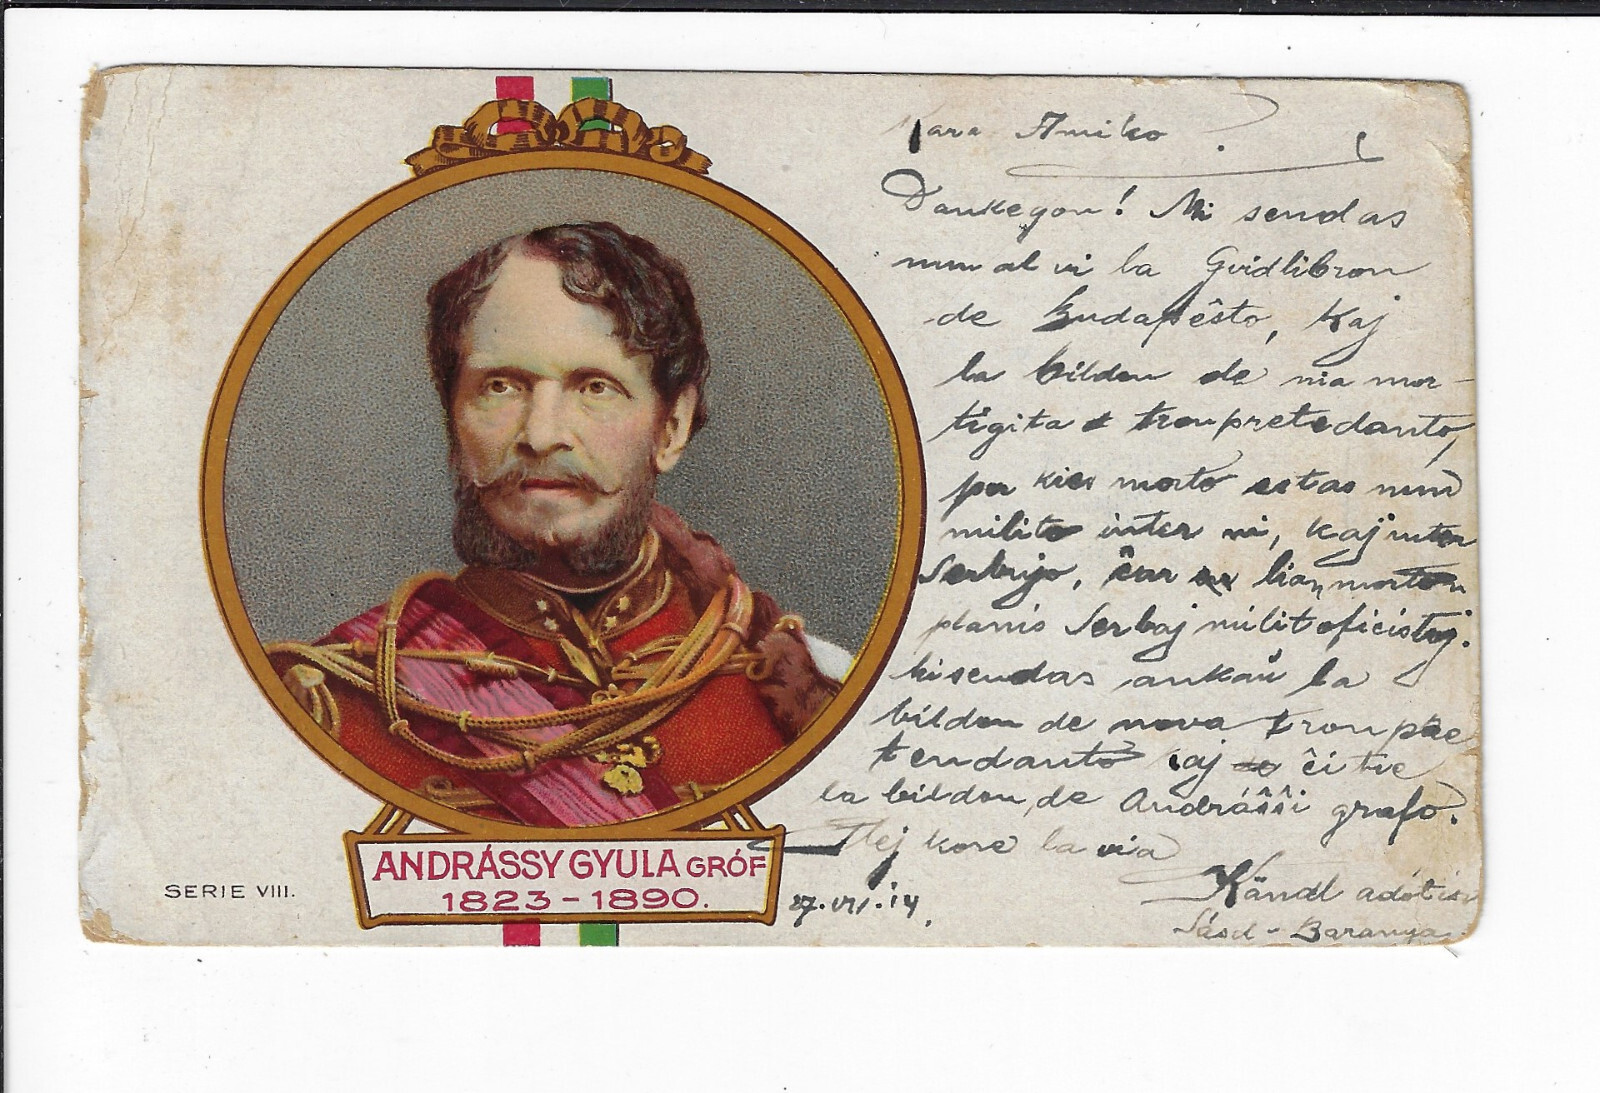 Kara Amiko!
Dankegon! Mi sendas
nun al vi la Gvidlibron
de Budapêsto, kaj
la bildon de nia mor-
tigita tronpretedanto,
por kies morto estas nun
milito inter ni, kaj inter
Serbujo, ĉar lian morton
planis Serbaj militoficistoj.
Mi sendas ankaŭ la
bildon de nova tronpre
tendanto kaj ĉi tie
la bildon de Andráŝŝi grafo.
Plej kore la via
27. VII. 14.
Kändl adótiszt
Sásd - Baranya
ANDRÁSSY GYULA GRÓF
1823-1890.
SERIE VIII.